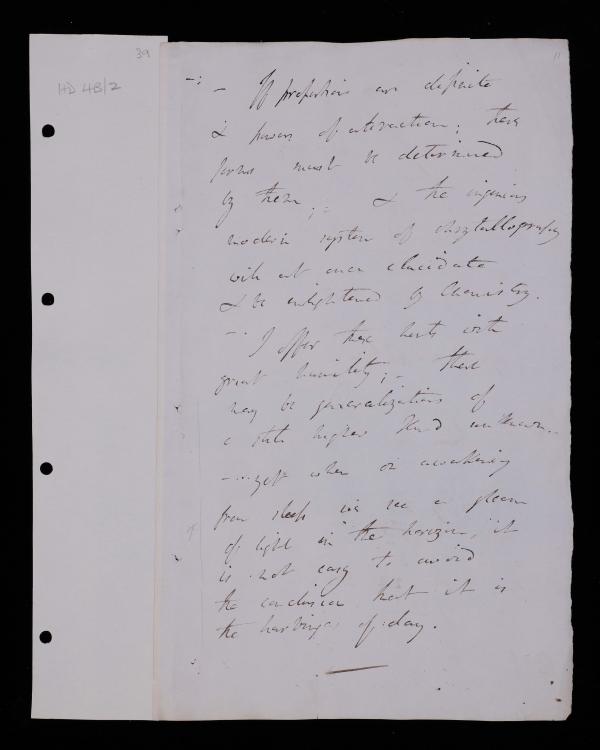 39
11
HD 4B/2
- If proportions are definite
& powers of attraction; these
forms must be determined
by them; - & the ingenious
modern system of chrystallography
will at once elucidate
& be enlightened by Chemistry.
- I offer these hints with
great humility; - There
may be generalizations of
a still higher kind unknown..
- ... yet when on awakening
from sleep we see a gleam
of light in the horizon, it
is not easy to avoid
the conclusion that it is
the harbinger of day.